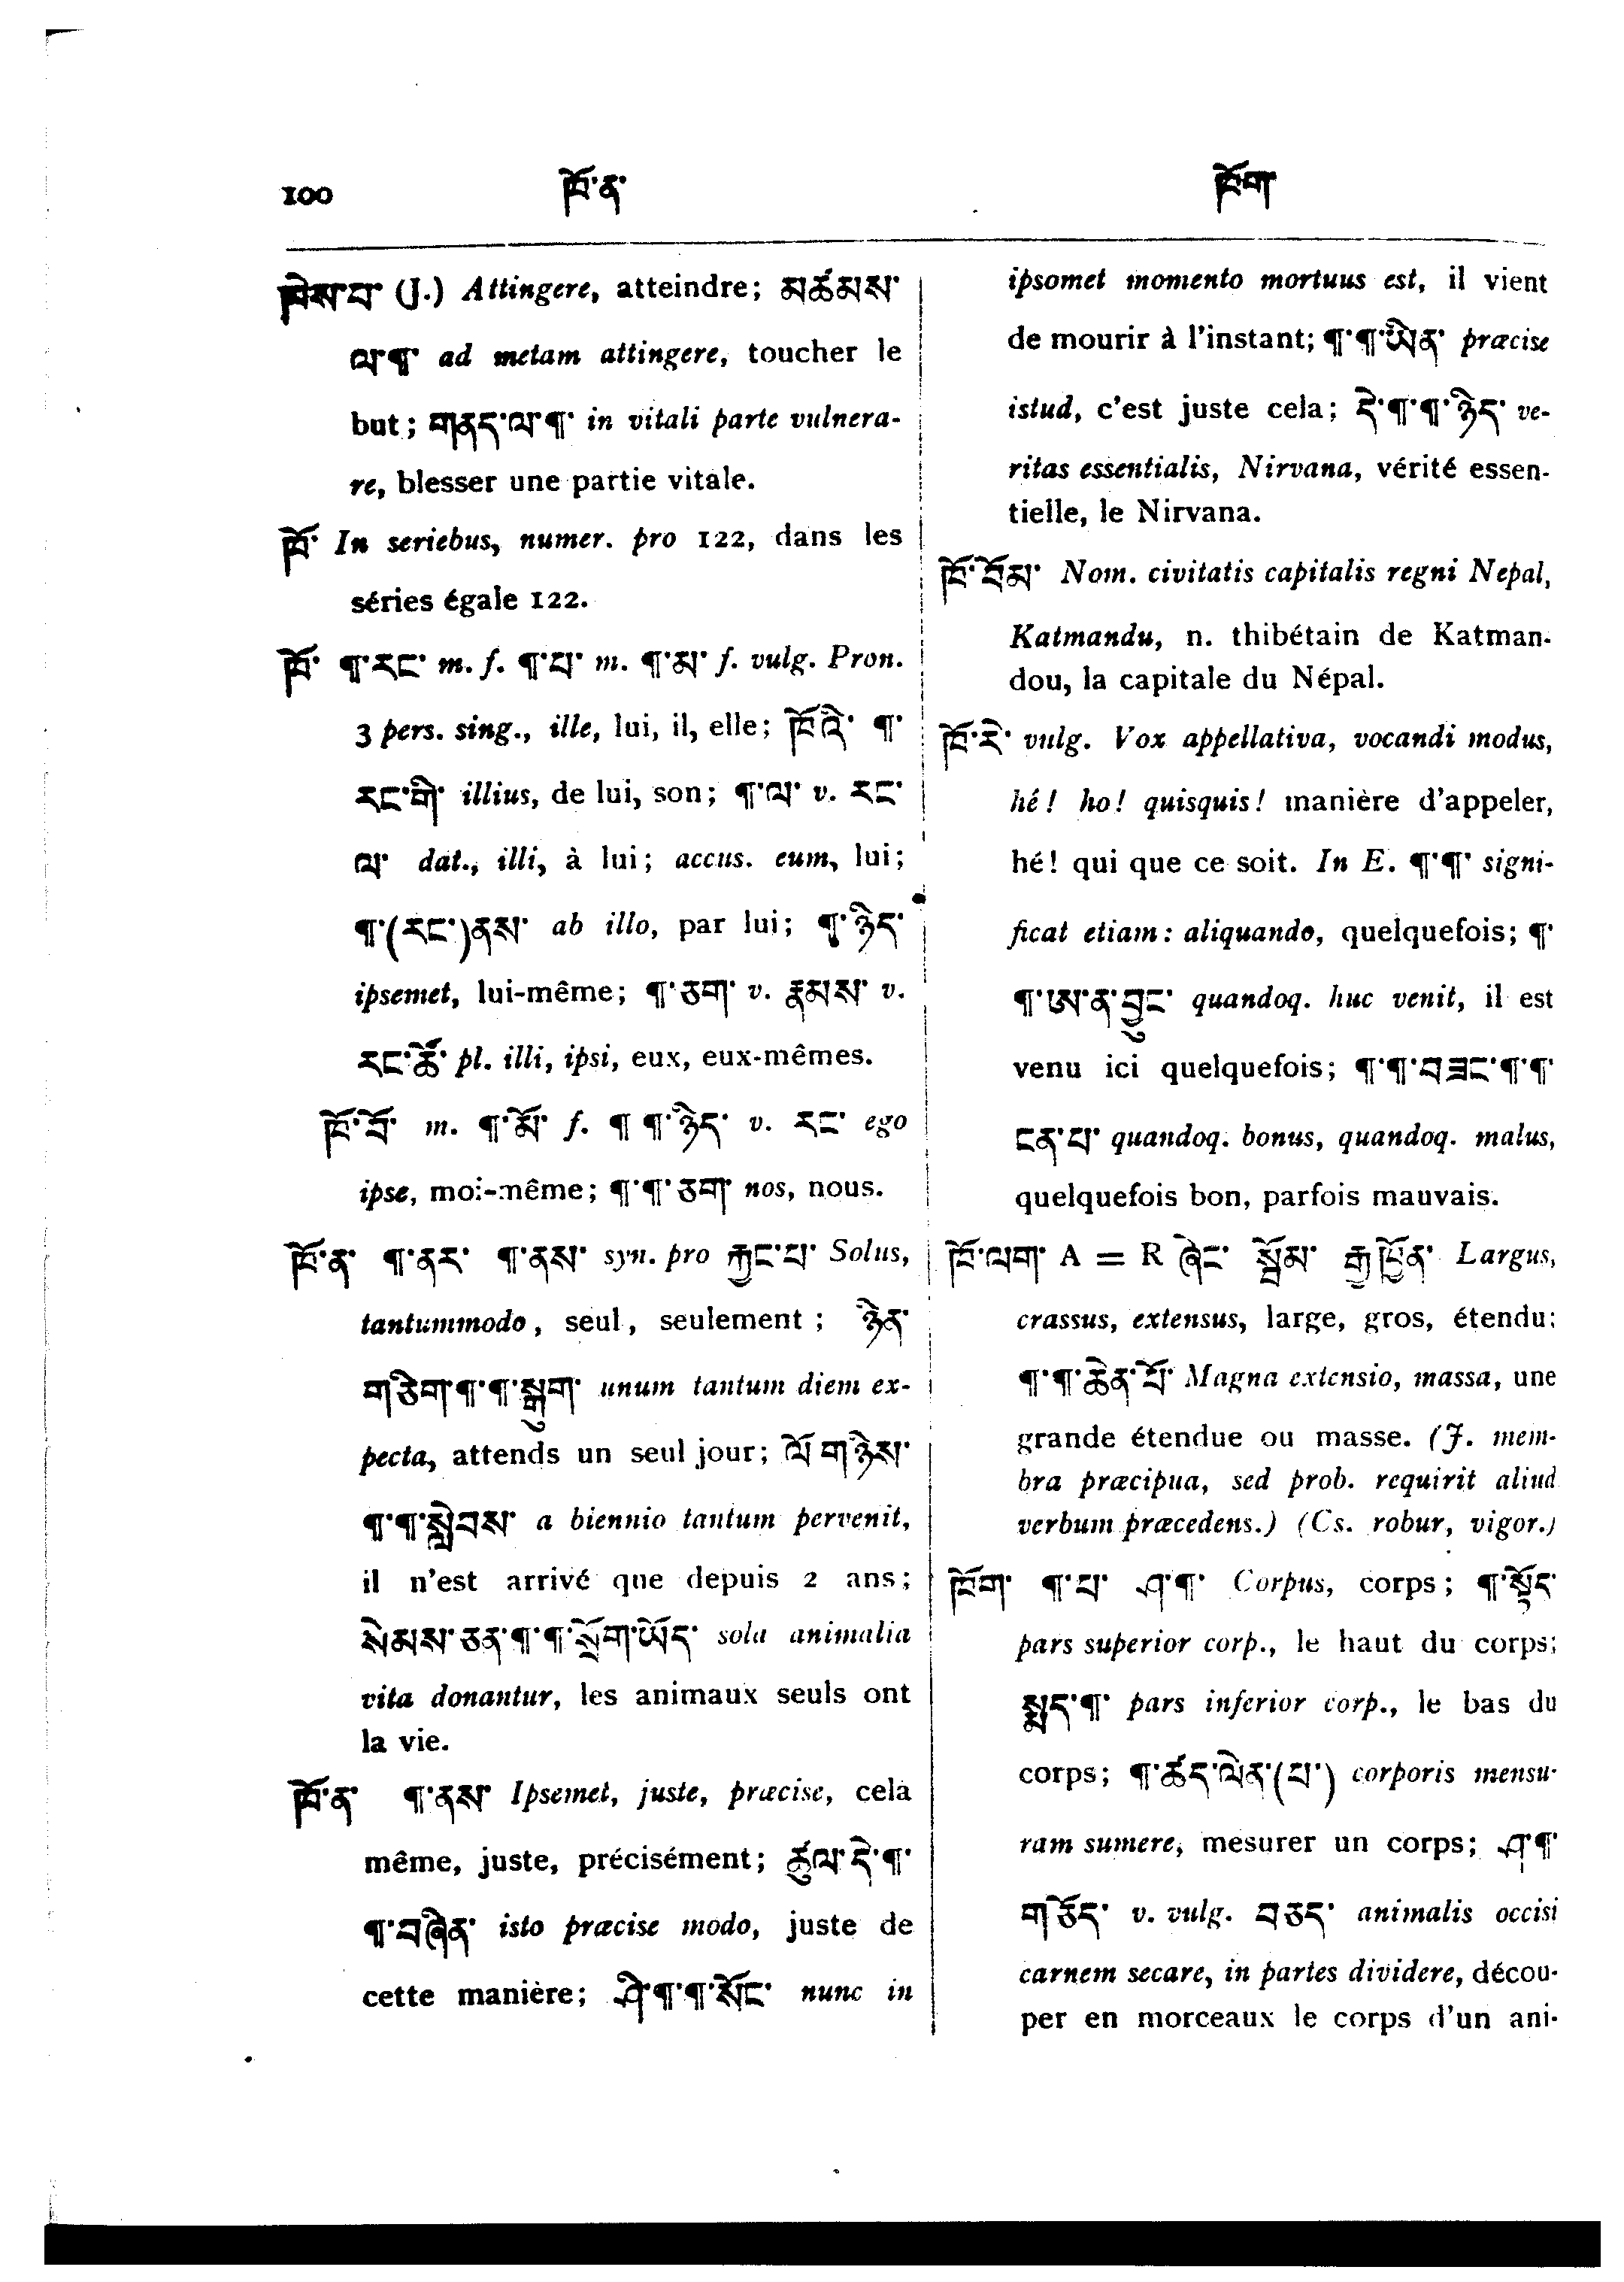 100 ཁོ་ན་ ཁོག
ཁེས་པ་ (J.) Attingere, atteindre; མཚམས་
ལ་¶་ ad metam attingere, toucher le
but; གནད་ལ་¶་ in vitali parte vulnera-
re, blesser une partie vitale.
ཁོ་ In seriebus, numer. pro 122, dans les
séries égale 122.
ཁོ་ ¶་རང་ m. f. ¶་པ་ m. ¶་མ་ f. vulg. Pron.
3 pers. sing., ille, lui, il, elle; ཁོའི་ ¶་
རང་གི་ illius, de lui, son; ¶་ལ་ v. རང་
ལ་ dat., illi, à lui; accus. eum, lui;
¶་(རང་)ནས་ ab illo, par lui; ¶་ཉིད་
ipsemet, lui-même; ¶་ཅག་ v. རྣམས་ v.
རང་ཚོ་ pl. illi, ipsi, eux, eux-mêmes.
ཁོ་བོ་ m. ¶་མོ་ f. ¶ ¶་ཉིད་ v. རང་ ego
ipse, moi-même; ¶་¶་ཅག་ nos, nous.
ཁོ་ན་ ¶་ནར་ ¶་ནས་ syn. pro རྐྱང་པ་ Solus,
tantummodo, seul, seulement; ཉིན་
གཅིག་¶་¶་སྒུག་ unum tantum diem ex-
pecta, attends un seul jour; ལོ་གཉིས་
¶་¶་སླེབས་ a biennio tantum pervenit,
il n'est arrivé que depuis 2 ans;
སེམས་ཅན་¶་¶་སྲོག་ཡོད་ sola animalia
vita donantur, les animaux seuls ont
la vie.
ཁོ་ན་ ¶་ནས་ Ipsemet, juste, præcise, cela
même, juste, précisément; ཚུལ་དེ་¶་
¶་བཞིན་ isto præcise modo, juste de
cette manière; ཤི་¶་¶་སོང་ nunc in
ipsomet momento mortuus est, il vient
de mourir à l'instant; ¶་¶་ཡིན་ præcise
istud, c'est juste cela; དེ་¶་¶་ཉིད་ ve-
ritas essentialis, Nirvana, vérité essen-
tielle, le Nirvana.
ཁོ་བོམ་ Nom. civitatis capitalis regni Nepal,
Katmandu, n. thibétain de Katman-
dou, la capitale du Népal.
ཁོ་རེ་ vulg. Vox appellativa, vocandi modus,
hé! ho! quisquis! manière d'appeler,
hé! qui que ce soit. In E. ¶་¶་ signi-
ficat etiam: aliquando, quelquefois; ¶་
¶་ཨ་ན་བྱུང་ quandoq. huc venit, il est
venu ici quelquefois; ¶་¶་བཟང་¶་¶་
ངན་པ་ quandoq. bonus, quandoq. malus,
quelquefois bon, parfois mauvais.
ཁོ་ལག་ A = R ཞེང་ སྦོམ་ རྒྱ་ཁྱོན་ Largus,
crassus, extensus, large, gros, étendu;
¶་¶་ཆེན་པོ་ Magna extensio, massa, une
grande étendue ou masse. (J. mem-
bra præcipua, sed prob. requirit aliud
verbum præcedens.) (Cs. robur, vigor.)
ཁོག་ ¶་པ་ ཤ་¶་ Corpus, corps; ¶་སྟོད་
pars superior corp., le haut du corps;
སྨད་¶་ pars inferior corp., le bas du
corps; ¶་ཚད་ལེན་(པ་) corporis mensu-
ram sumere, mesurer un corps; ཤ་¶་
གཅོད་ v. vulg. བཅད་ animalis occisi
carnem secare, in partes dividere, décou-
per en morceaux le corps d'un ani-